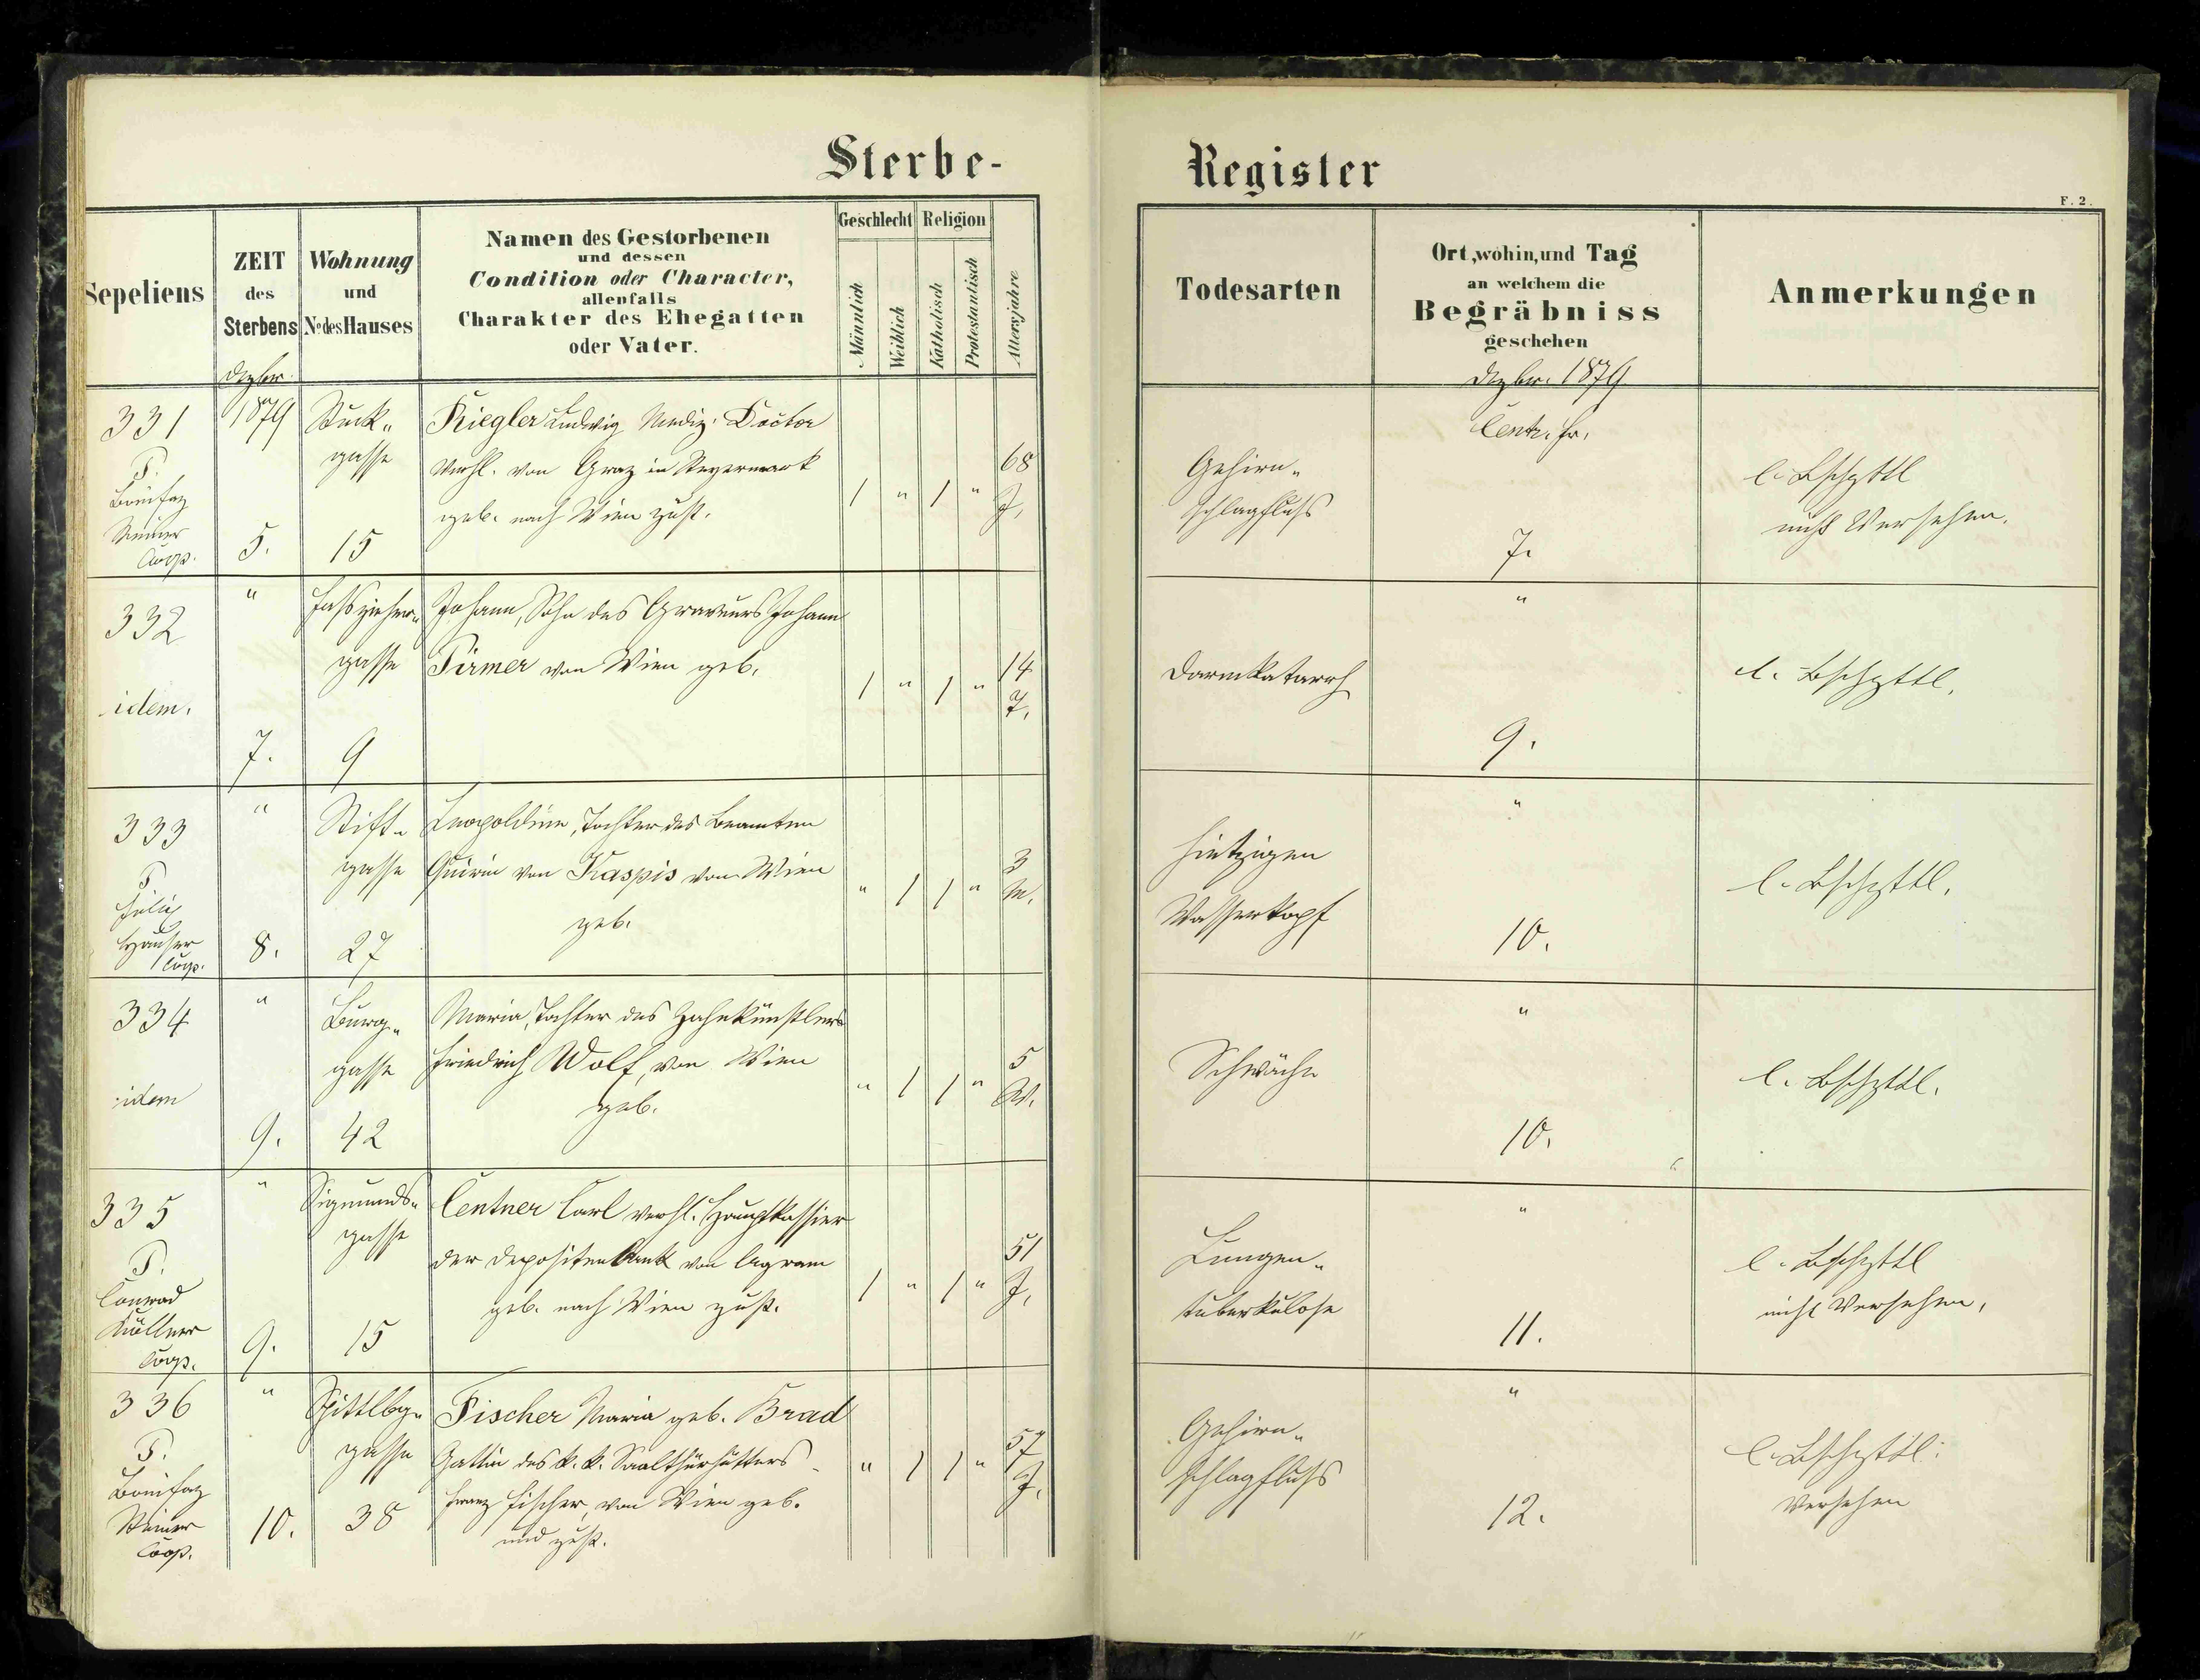 Sterbe-
Register
F. 2.
Sepeliens
ZEIT
des
Sterbens
Dzbr.
Wohnung
und
No des Hauses
Namen des Gestorbenen
und dessen
Condition oder Character,
allenfalls
Charakter des Ehegatten
oder Vater.
Geschlecht
Männlich
Weiblich
Religion
Katholisch
Protestantisch
Altersjahre
Todesarten
Ort, wohin, und Tag
an welchem die
Begräbniss
geschehen
Dzbr. 1879
Anmerkungen
331
P.
Bonifaz
Coop.
1879
5.
Stuck„
gasse
15
Riegler Ludwig Mediz. Doctor
verhl. von Graz in Steyermark
geb. nach Wien zust.
1 " 1 "
68
J.
Gehirn„
schlagfluß
Centr. fr.
7.
l. Bschzttl
nicht Versehen.
332
idem.
"
7.
Faßzieher„
gasse
9
Johann, Sohn des Graveurs Johann
Pirmer von Wien geb.
1 " 1 "
14
Darmkatarrh
"
9.
l. Bschzttl.
333
P.
Hauser
Coop.
"
8.
Stift„
gasse
27
Leopoldine, Tochter des Beamten
Quirin von Kaspis von Wien
geb.
" 1 1 "
3
M.
hitzigen
Wasserkopf
"
10.
l. Bschzttl.
334
idem
"
9.
Burg„
gasse
42
Maria, Tochter des Zahnkünstlers
Friedrich Wolf, von Wien
geb.
" 1 1 "
5
W.
Schwäche
"
10.
l. Bschzttl.
335
P.
Conrad
Müllner
Coop.
"
9.
Sigmunds„
gasse
15
Centner Carl verhl. Hauptkassier
der Depositenbank von Agram
geb. nach Wien zust.
1 " 1 "
51
J.
Lungen„
tuberkulose
"
11.
l. Bschzttl
nicht Versehen.
336
P.
Bonifaz
Coop.
"
10.
Spittlbg„
gasse
38
Fischer Maria geb. Brad
Gattin des k. k. Saalthürhütters
Franz Fischer, von Wien geb.
und zust.
" 1 1 "
57
J.
Gehirn„
schlagfluß
"
12.
l. Bschzttl.
Versehen